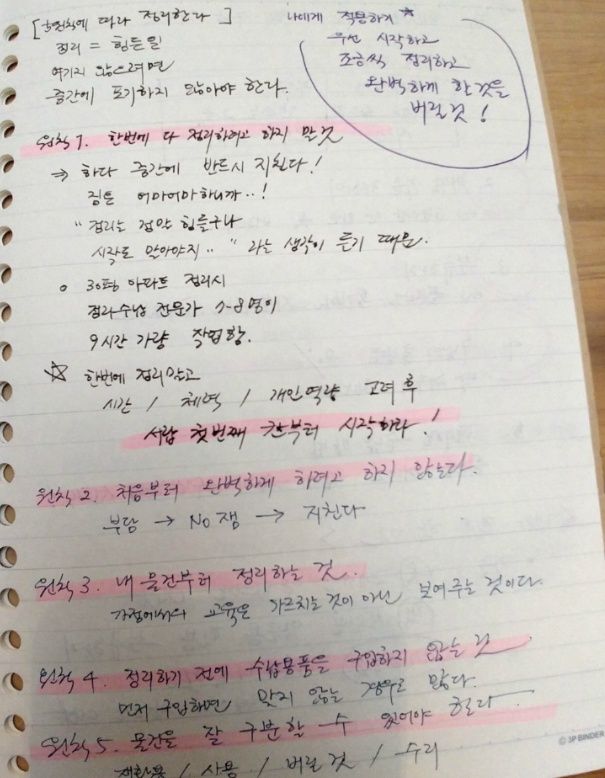 [5원칙에 따라 정리한다]
정리 = 힘든일
여기지 않으려면
중간에 포기하지 않아야 한다.
나에게 적용하기 ☆
우선 시작하고
조금씩 정리하고
완벽하게 한 것을
버릴것!
원칙 1. 한번에 다 정리하려고 하지 말것
⇒ 하다 중간에 반드시 지친다!
짐은 어마어마하니까..!
"정리는 정말 힘들구나
시작도 말아야지.." 라는 생각이 들기 때문.
o 30평 아파트 정리시
정리수납 전문가 7-8명이
9시간 가량 작업함.
☆ 한번에 정리말고
시간 / 체력 / 개인역량 고려 후
서랍 첫번째 칸부터 시작하라!
원칙 2. 처음부터 완벽하게 하려고 하지 않는다.
부담 → No잼 → 지친다
원칙 3. 내 물건부터 정리하는 것.
가정에서의 교육은 가르치는것이 아닌 보여주는 것이다.
원칙 4. 정리하기 전에 수납용품을 구입하지 않는 것
먼저 구입하면 맞지 않는 경우도 많다.
원칙 5. 물건을 잘 구분할 수 있어야 한다
재활용 / 사용 / 버릴것 / 수리
© 3P BINDER